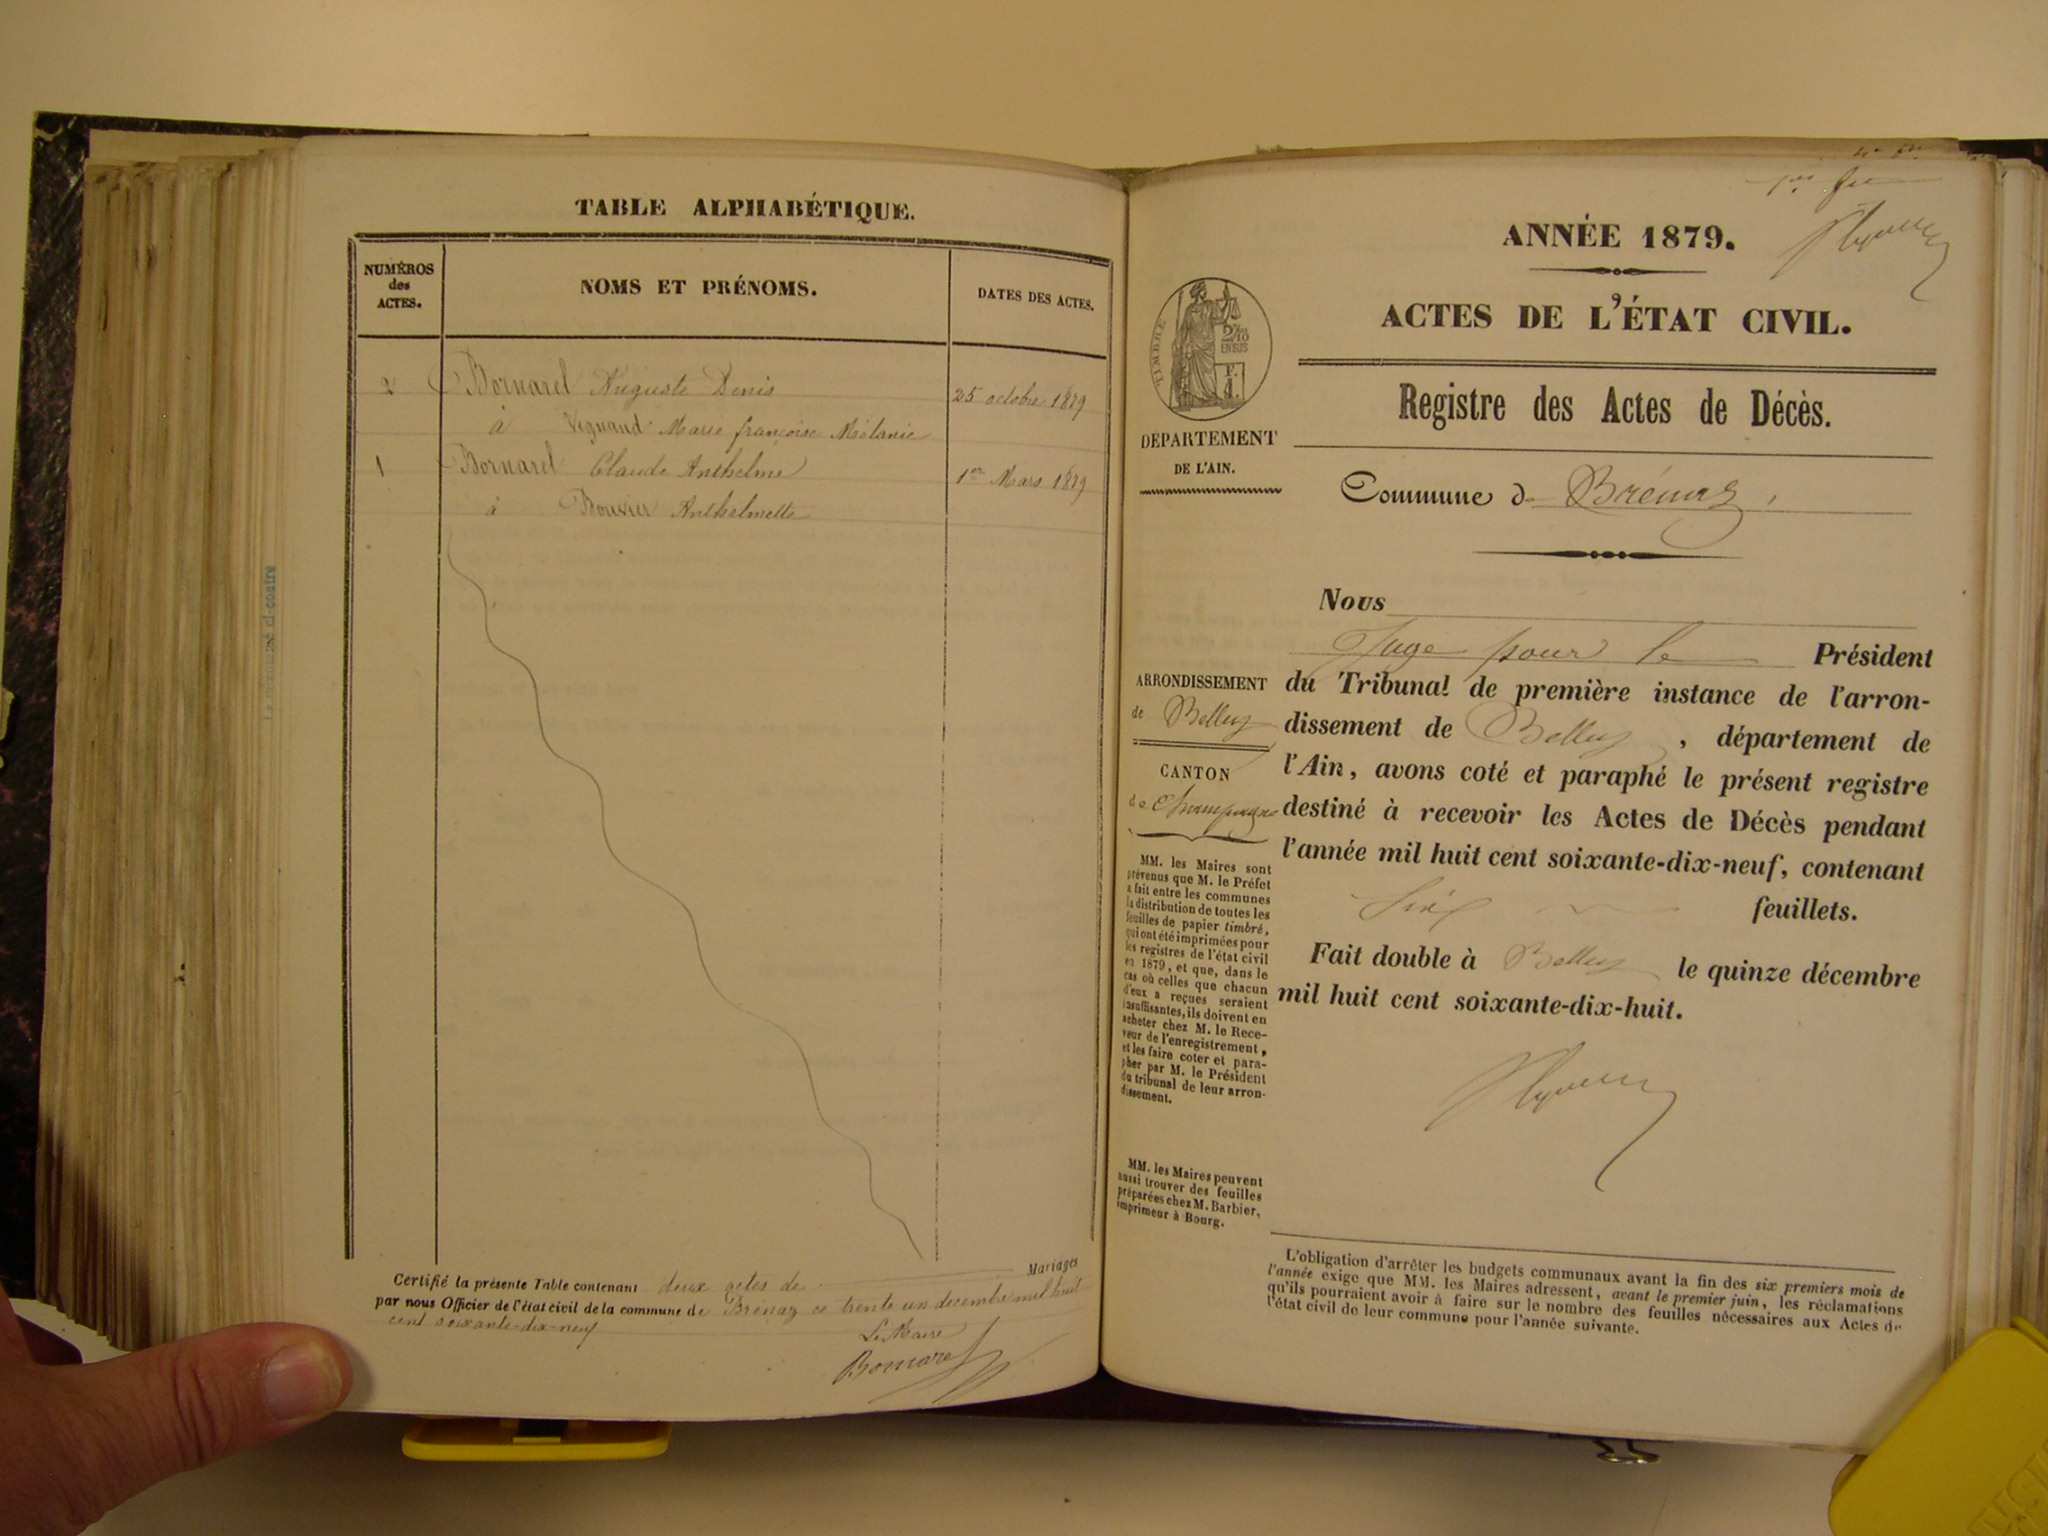 TABLE ALPHABÉTIQUE.
NUMÉROS
des
ACTES.
NOMS ET PRÉNOMS.
DATES DES ACTES.
2 Bornarel Auguste Denis 25 octobre 1879
à Vignand Marie françoise Mélanie
1 Bornarel Claude Anthelme 1er Mars 1879
à Bouvier Anthelmette
Certifié la présente Table contenant deux actes de Mariages
par nous Officier de l'état civil de la commune de Brénaz ce trente un decembre mil huit
cent soixante-dix-neuf
Le Maire
Bornarel
ANNÉE 1879.
ACTES DE L'ÉTAT CIVIL.
TIMBRE
2/10
EN SUS
DÉPARTEMENT
DE L'AIN.
Registre des Actes de Décès.
Commune de Brénaz,
Nous
Juge pour le Président
du Tribunal de première instance de l'arron-
dissement de Belley, département de
l'Ain, avons coté et paraphé le présent registre
destiné à recevoir les Actes de Décès pendant
l'année mil huit cent soixante-dix-neuf, contenant
Six feuillets.
Fait double à Belley le quinze décembre
mil huit cent soixante-dix-huit.
ARRONDISSEMENT
de Belley
CANTON
de Champagne
MM. les Maires sont
prévenus que M. le Préfet
a fait entre les communes
la distribution de toutes les
feuilles de papier timbré,
qui ont été imprimées pour
les registres de l'état civil
en 1879, et que, dans le
cas où celles que chacun
d'eux a reçues seraient
insuffisantes, ils doivent en
acheter chez M. le Rece-
veur de l'enregistrement,
et les faire coter et para-
pher par M. le Président
du tribunal de leur arron-
dissement.
MM. les Maires peuvent
aussi trouver des feuilles
préparées chez M. Barbier,
imprimeur à Bourg.
L'obligation d'arrêter les budgets communaux avant la fin des six premiers mois de
l'année exige que MM. les Maires adressent, avant le premier juin, les réclamations
qu'ils pourraient avoir à faire sur le nombre des feuilles nécessaires aux Actes de
l'état civil de leur commune pour l'année suivante.